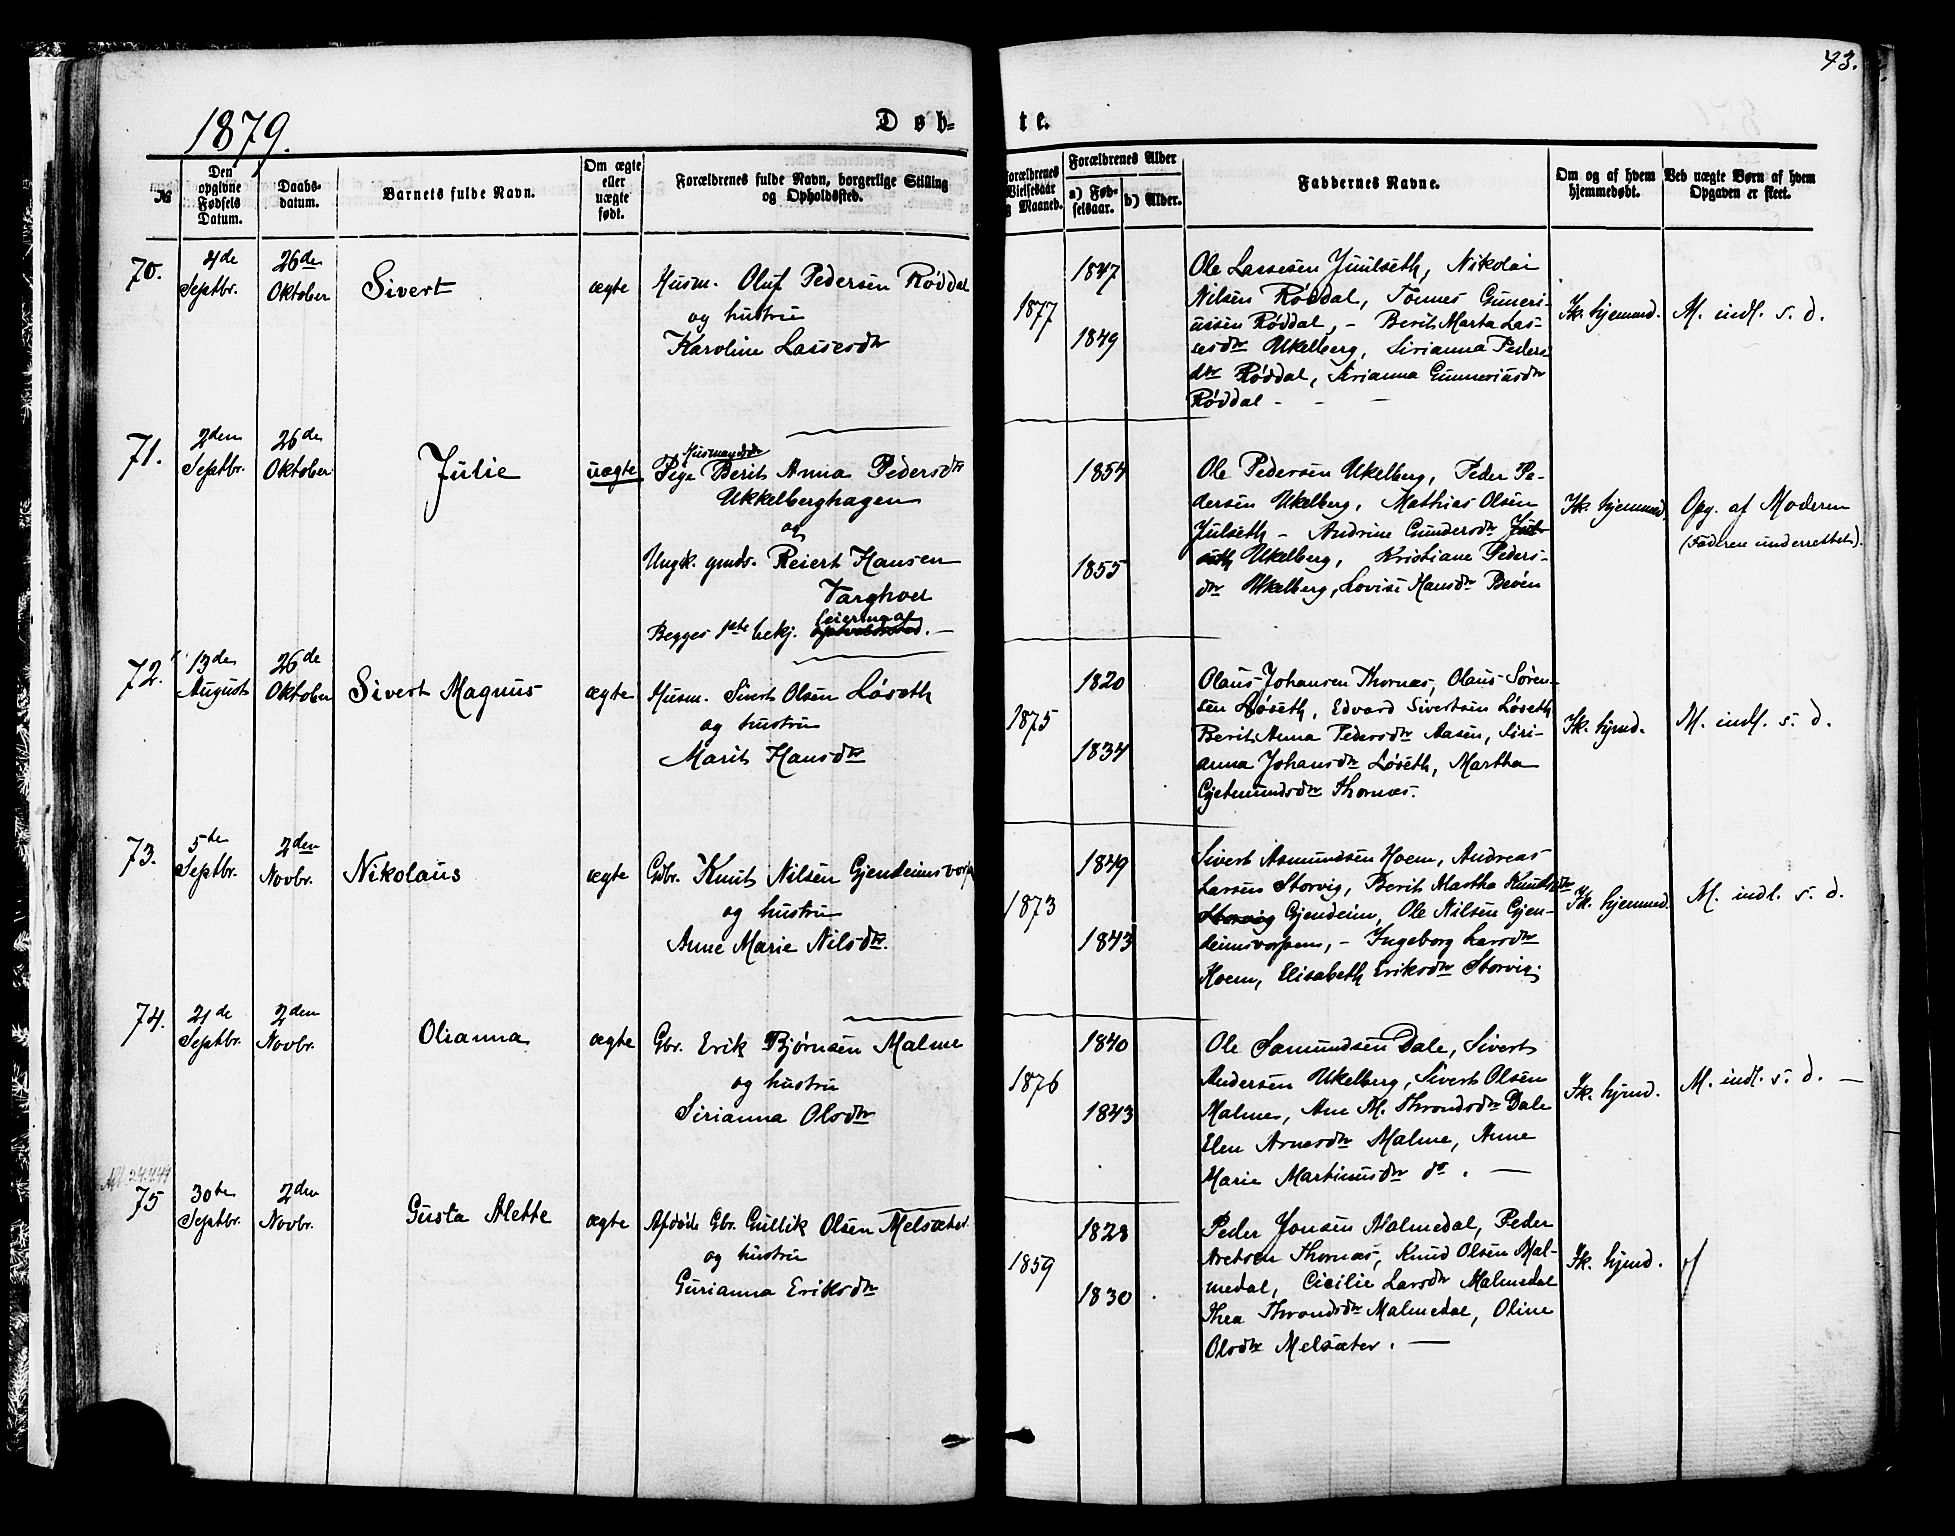 43.
1879.
Døb-
te.
№
Den opgivne Fødsels Datum.
Daabs-datum.
Barnets fulde Navn.
Om ægte eller uægte født.
Forældrenes fulde Navn, borgerlige Stilling og Opholdssted.
Forældrenes Vielsesaar og Maaned.
Forældrenes Alder
a) Fødselsaar.
b) Alder.
Faddernes Navne.
Om og af hvem hjemmedøbt.
Ved uægte Børn af hvem Opgaven er skeet.
70.
4de Septbr.
26de Oktober
Sivert
ægte
Husm. Oluf Pedersen Røddal
og hustru
Karoline Lassesdtr
1877
1847
1849
Ole Lassesen Juulseth, Nikolai
Nilsen Røddal, Tønnes Gunneri-
ussen Røddal, - Berit Marta Las-
sesdtr Ukelberg, Sirianna Peders
dtr Røddal, Sirianna Gunneriusdtr
Røddal - - -
Ik. hjemmd.
M. indl. s. d.
71.
2den Septbr.
26de Oktober
Julie
uægte
Husmandsdtr
Pige Berit Anna Pedersdtr
Ukkelberghagen
og
Ungk. gmds. Reiert Hansen
Varghoel
leiermaal
Begges 1ste bekj.
1854
1855
Ole Pedersen Ukelberg, Peder Pe-
dersen Ukelberg, Mathias Olsen
Julseth - Andrine Gundersdtr Jul-
seth Ukelberg, Kristiane Peders-
dtr Ukelberg, Lovise Hansdtr Beven
Ik. hjemmd.
Opg. af Moderen
(Faderen underrettet).
72.
13de August
26de Oktober
Sivert Magnus
ægte
Husm. Sivert Olsen Løseth
og hustru
Marit Hansdtr
1875
1820
1834
Olaus Johansen Thornæs, Olaus Søren-
sen Løseth, Edvard Sivertsen Løseth
Berit Anna Pedersdtr Aasen, Siri-
anna Johansdtr Løseth, Martha
Gjetmundsdtr Thornæs.
Ik. hjmd.
M. indl. s. d.
73.
5te Septbr.
2den Novbr.
Nikolaus
ægte
Gbr. Knut Nilsen Gjendeimsvorp
og hustru
Anne Marie Nilsdtr.
1873
1849
1843
Sivert Asmundsen Hoem, Andreas
Larsen Storvig, Berit Martha Knutsdtr
Storvig Gjendeim, Ole Nilsen Gjen-
deimsvorpen, - Ingeborg Larsdtr
Hoem, Elisabeth Eriksdtr Storvig.
Ik. hjemmd.
M. indl. s. d.
74.
21de Septbr.
2den Novbr.
Olianna
ægte
Gbr. Erik Bjørnsen Malme
og hustru
Sirianna Olsdtr
1876
1840
1843
Ole Samundsen Dale, Sivert
Andersen Ukelberg, Sivert Olsen
Malme, Ane M. Throndsdtr Dale
Elen Arnesdtr Malme, Anne
Marie Martinusdtr do. -
Ik. hjmd.
M. indl. s. d. -
75
30te Septbr.
2den Novbr.
Gusta Alette
ægte
Afdøde Gbr. Gullik Olsen Melsæter
og hustru
Gurianna Eriksdtr
1859
1828
1830
Peder Jonsen Malmedal, Peder
Aretsen Thornæs, Knud Olsen Mal-
medal, Cicilie Larsdtr Malmedal
Thea Throndsdtr Malmedal, Oline
Olsdtr Melsæter. -
Ik. hjmd.